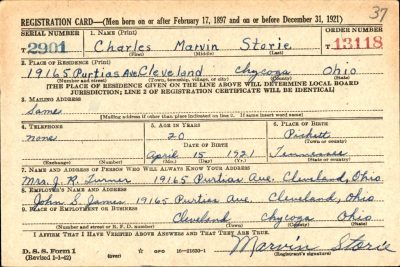 37
REGISTRATION CARD—(Men born on or after February 17, 1897 and on or before December 31, 1921)
SERIAL NUMBER 1. NAME (Print) ORDER NUMBER
T 2901 Charles Marvin Storie T 13118
(First) (Middle) (Last)
2. PLACE OF RESIDENCE (Print)
19165 Purtias Ave. Cleveland Chycoga Ohio
(Number and street) (Town, township, village, or city) (County) (State)
[THE PLACE OF RESIDENCE GIVEN ON THE LINE ABOVE WILL DETERMINE LOCAL BOARD
JURISDICTION; LINE 2 OF REGISTRATION CERTIFICATE WILL BE IDENTICAL]
3. MAILING ADDRESS
Same
[Mailing address if other than place indicated on line 2. If same insert word same]
4. TELEPHONE 5. AGE IN YEARS 6. PLACE OF BIRTH
none 20 Pickett
DATE OF BIRTH (Town or county)
April 15 1921 Tennessee
(Exchange) (Number) (Mo.) (Day) (Yr.) (State or country)
7. NAME AND ADDRESS OF PERSON WHO WILL ALWAYS KNOW YOUR ADDRESS
Mrs. J. R. Turner 19165 Purtias Ave. Cleveland, Ohio.
8. EMPLOYER'S NAME AND ADDRESS
John S. James 19165 Purtias Ave. Cleveland, Ohio.
9. PLACE OF EMPLOYMENT OR BUSINESS
Cleveland Chycoga Ohio
(Number and street or R. F. D. number) (Town) (County) (State)
I AFFIRM THAT I HAVE VERIFIED ABOVE ANSWERS AND THAT THEY ARE TRUE.
D. S. S. Form 1 GPO 16—21630-1 Marvin Storie
(Revised 1-1-42) (Registrant's signature)